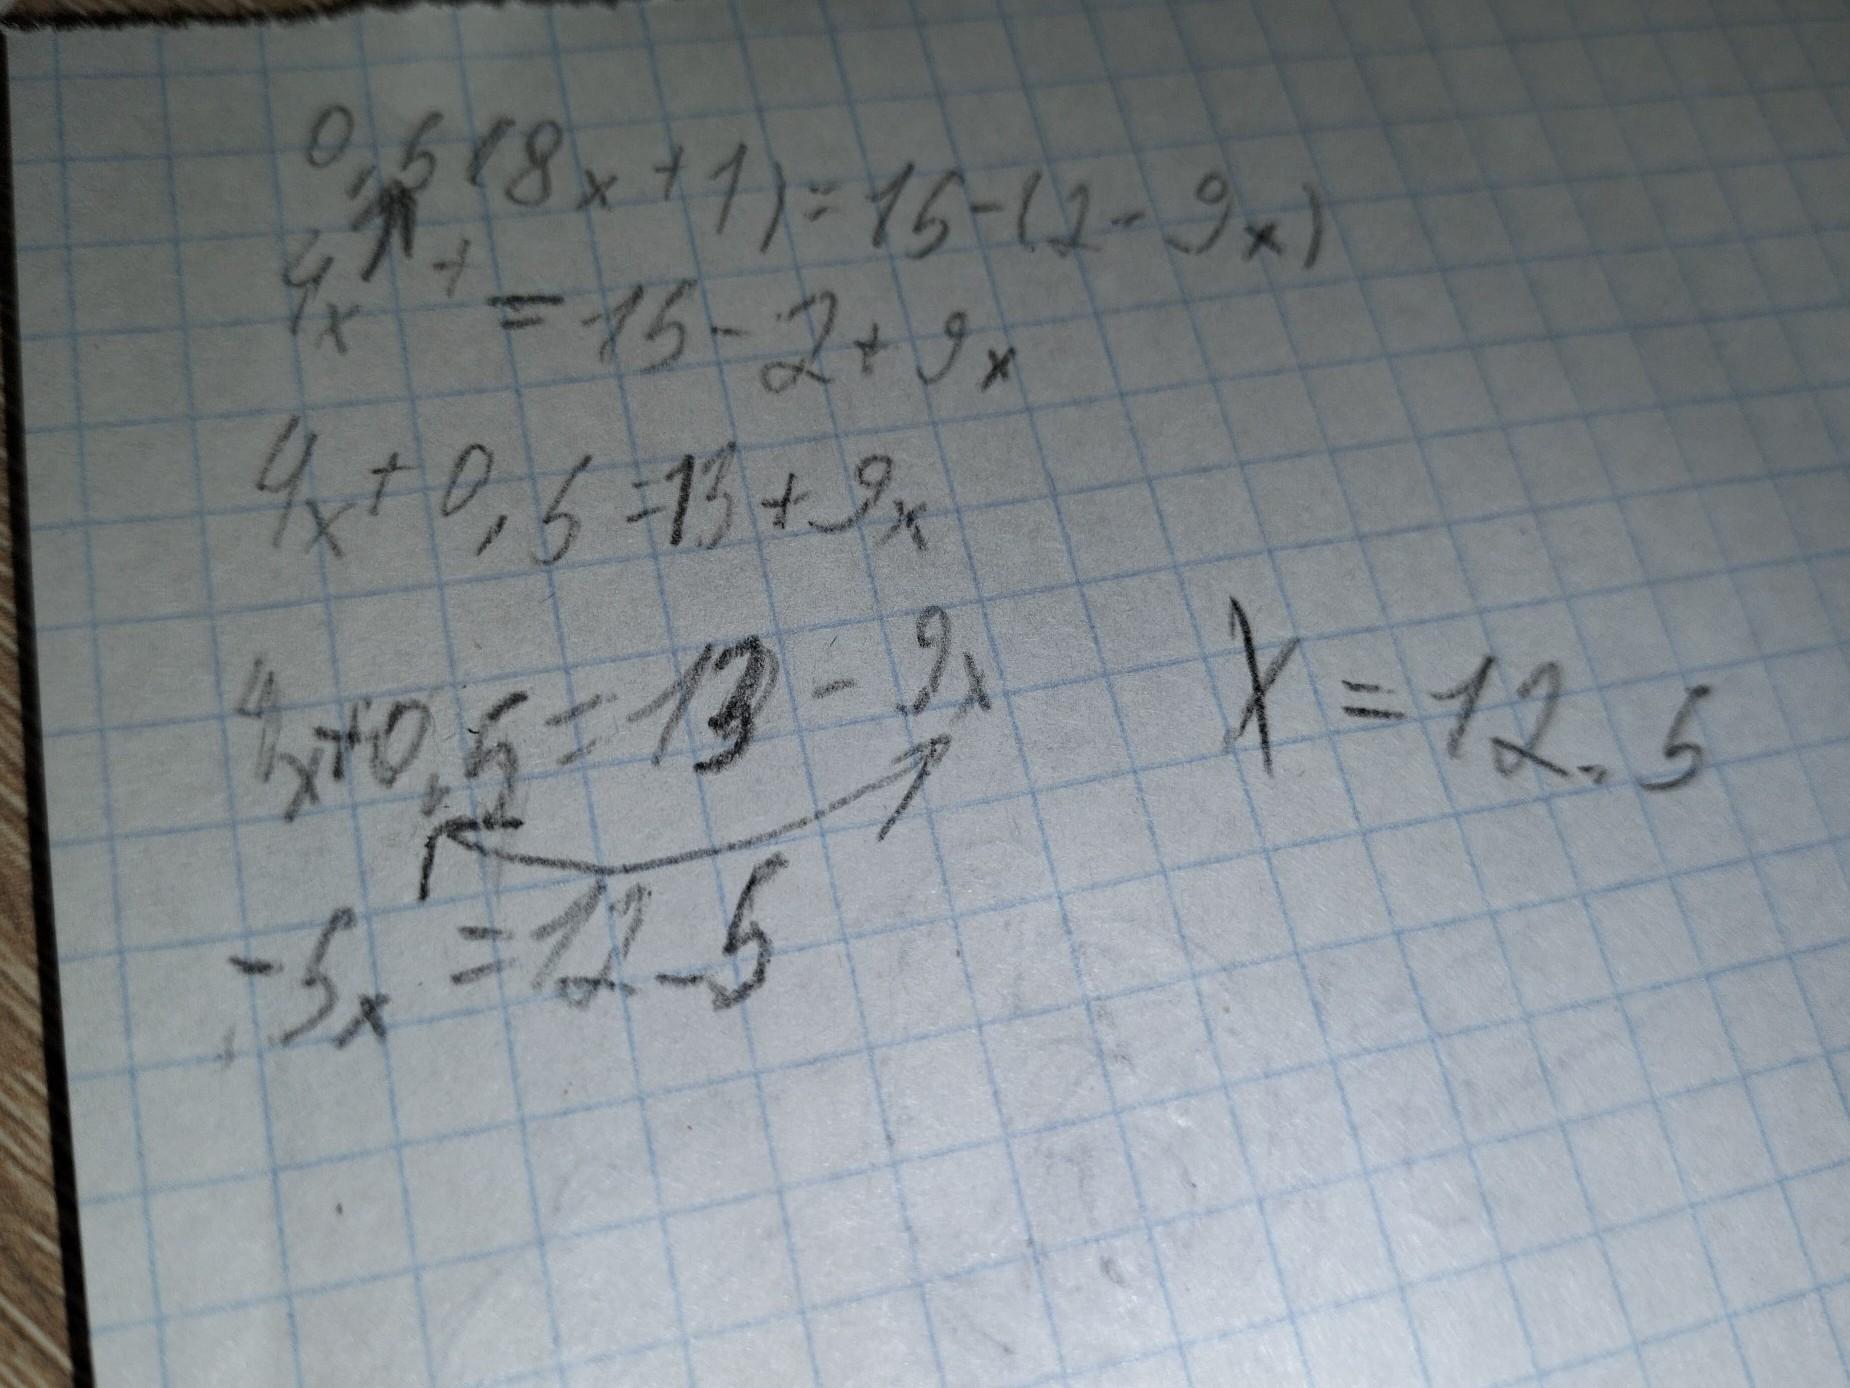 0,5(8x+1)=15-(2-9x)
4x + =15-2+9x
4x+0,5=13+9x
4x+0,5=13-9x
-5x =12.5
X=12.5